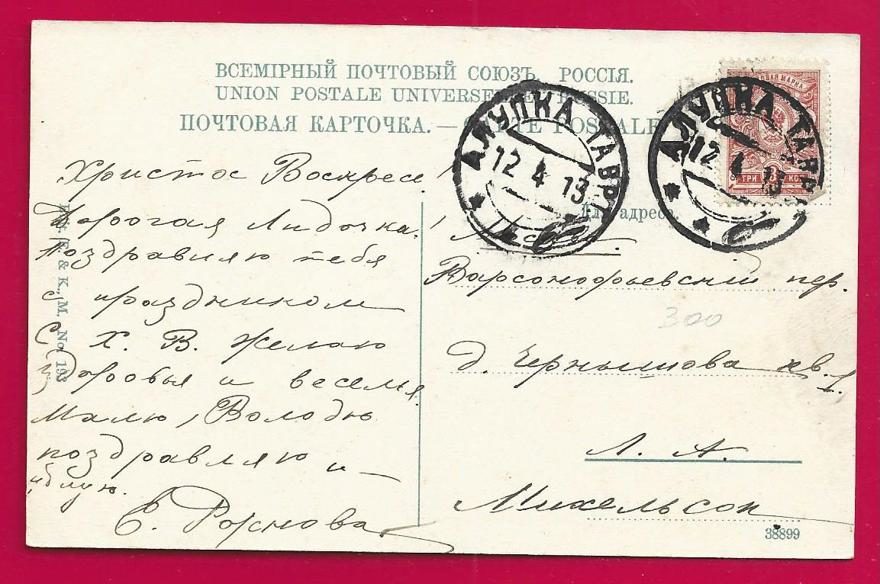 ВСЕМІРНЫЙ ПОЧТОВЫЙ СОЮЗЪ. РОССІЯ.
UNION POSTALE UNIVERSE RUSSIE.
ПОЧТОВАЯ КАРТОЧКА. — POSTALE
АЛУПКА ТАВР.
12 4 13
АЛУПКА ТАВР.
12 4 13
ТРИ 3 КОП
Для адреса.
Христосъ Воскресе!
Дорогая Лидочка,
Поздравляю тебя
с праздником
С Х. В. Желаю
здоровья и веселья.
Малю, Володю
поздравляю и
цѣлую.
Е. Рожнова
Варсонофьевскій пер.
д. Чернышова кв. 1.
Л. А.
Михельсон
300
& К., М. No. 193
38899